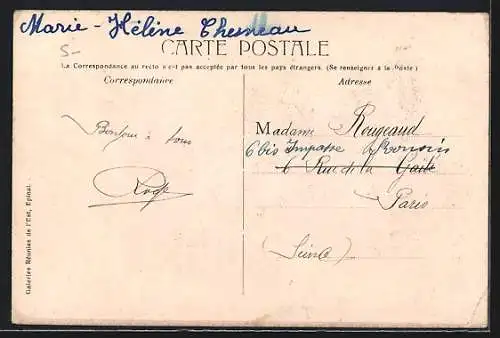 Marie-Hélène Thesneau
5-
CARTE POSTALE
La Correspondance au recto n'est pas acceptée par tous les pays étrangers. (Se renseigner à la Poste)
Correspondance
Adresse
Bonjour à tous
Madame Rougeaud
6 bis Impasse
6 Rue de la Gaîté
Paris
(Seine)
Galeries Réunies de l'Est, Epinal.